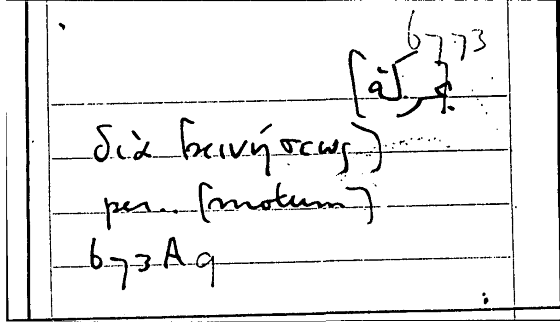 [à]
διὰ κινήσεως)
per.. [motum]
673A9